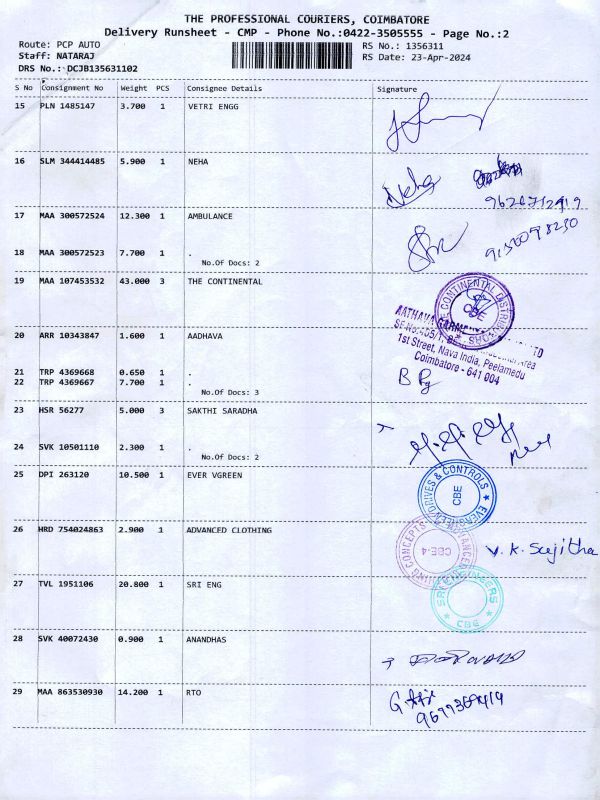 THE PROFESSIONAL COURIERS, COIMBATORE
Delivery Runsheet - CMP - Phone No.:0422-3505555 - Page No.:2
Route: PCP AUTO
RS No.: 1356311
Staff: NATARAJ
RS Date: 23-Apr-2024
DRS No.: DCJB135631102
S No Consignment No Weight PCS Consignee Details Signature
15 PLN 1485147 3.700 1 VETRI ENGG
16 SLM 344414485 5.900 1 NEHA
Neha
17 MAA 300572524 12.300 1 AMBULANCE
18 MAA 300572523 7.700 1 .
No.Of Docs: 2
19 MAA 107453532 43.000 3 THE CONTINENTAL
CONTINENTAL
CBE
AATHAVA
1st Street, Nava India, Peelamedu
Coimbatore - 641 004
20 ARR 10343847 1.600 1 AADHAVA
21 TRP 4369668 0.650 1 .
22 TRP 4369667 7.700 1 .
No.Of Docs: 3
23 HSR 56277 5.000 3 SAKTHI SARADHA
24 SVK 10501110 2.300 1 .
No.Of Docs: 2
25 DPI 263120 10.500 1 EVER VGREEN
EVERGREEN DRIVES & CONTROLS
CBE
26 HRD 754024863 2.900 1 ADVANCED CLOTHING
CBE-4
V. K. Sujitha
27 TVL 1951106 20.800 1 SRI ENG
CBE
28 SVK 40072430 0.900 1 ANANDHAS
29 MAA 863530930 14.200 1 RTO